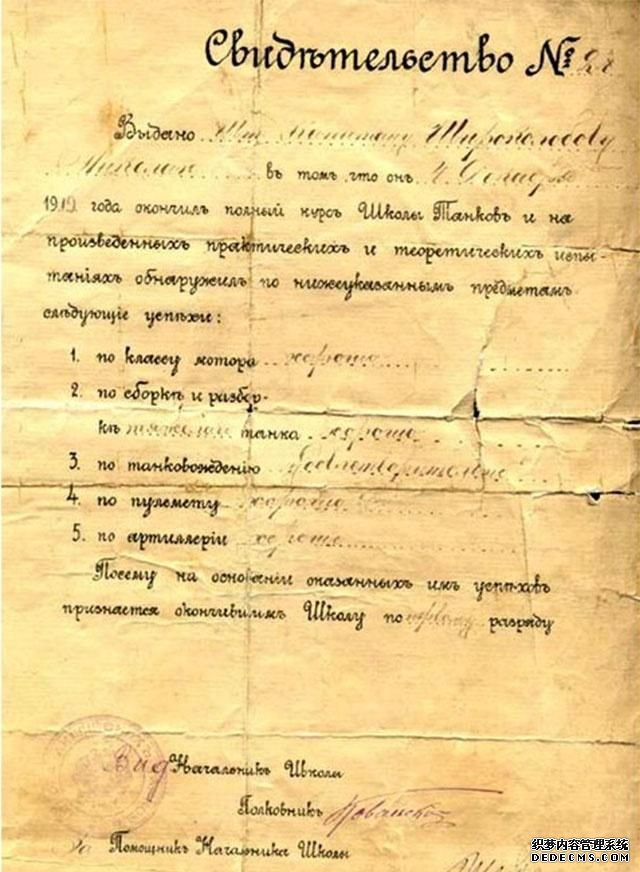 Свидѣтельство №
Выдано Шт. Капитану
въ томъ что онъ 4 Декабря
1919 года окончилъ полный курсъ Школы Танковъ и на
произведенныхъ практическихъ и теоретическихъ испы-
танiяхъ обнаружилъ по нижеуказаннымъ предметамъ
слѣдующiе успѣхи:
1. по классу мотора хорошо
2. по сборкѣ и разбор-
кѣ тяжелаго танка хорошо
3. по танковожденiю удовлетворительно
4. по пулемету хорошо
5. по артиллерiи хорошо
Посему на основанiи оказанныхъ имъ успѣховъ
признается окончившимъ Школу по первому разряду
Вид Начальникъ Школы
Полковникъ
За Помощникъ Начальника Школы
织梦内容管理系统
DEDECMS.COM